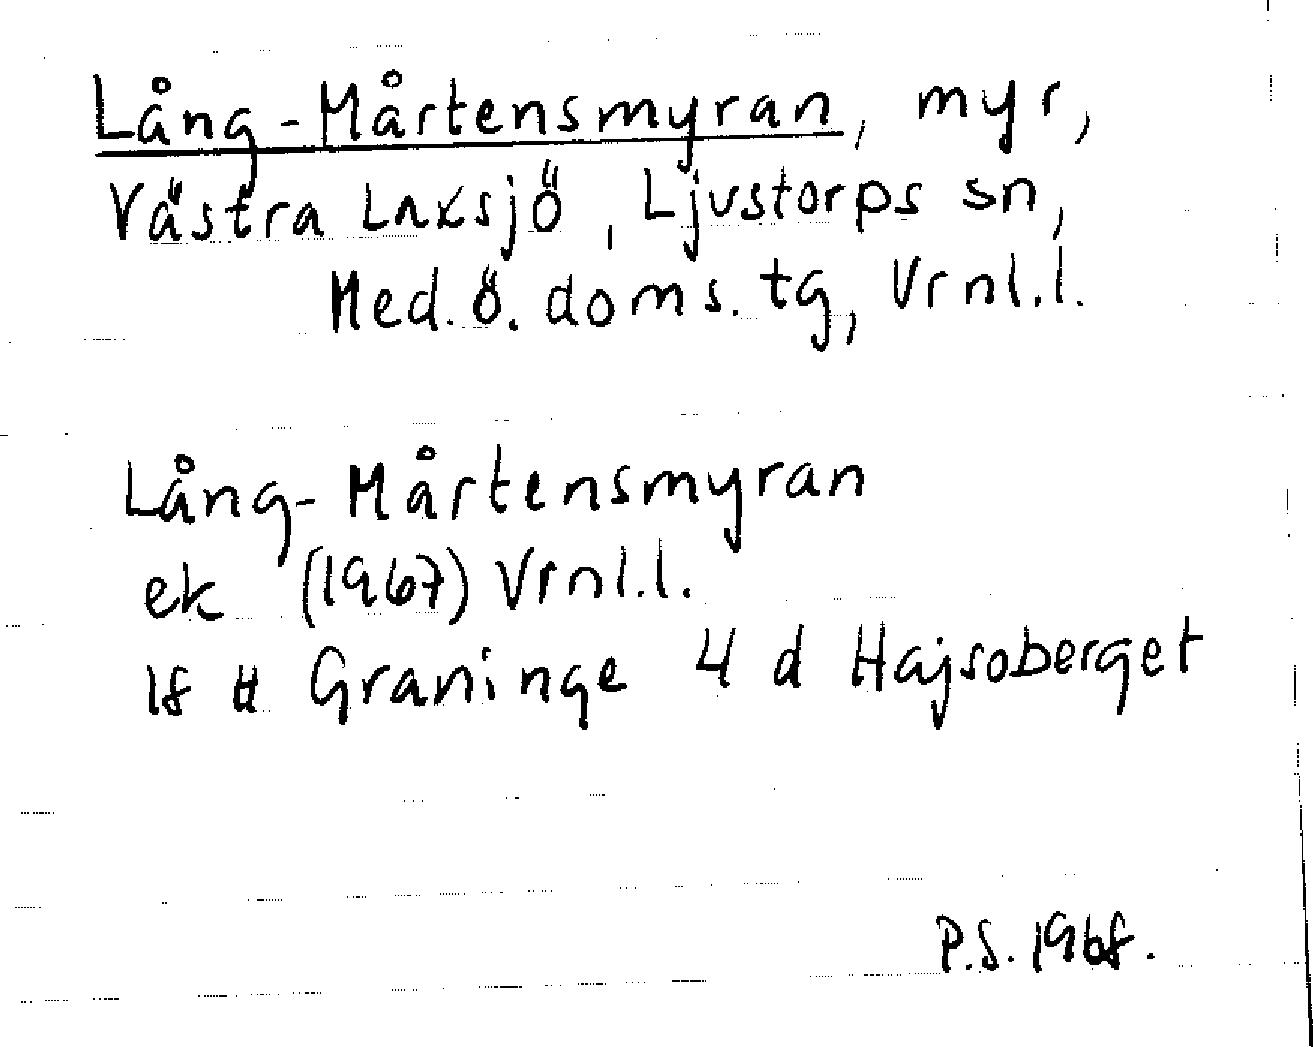 Lång-Mårtensmyran, myr,
Västra Laxsjö, Ljustorps sn,
Med. ö. doms. tg, Vrnl.l.
Lång-Mårtensmyran
ek (1967) Vrnl.l.
18 H Graninge 4 d Hajsoberget
P.S. 1968.